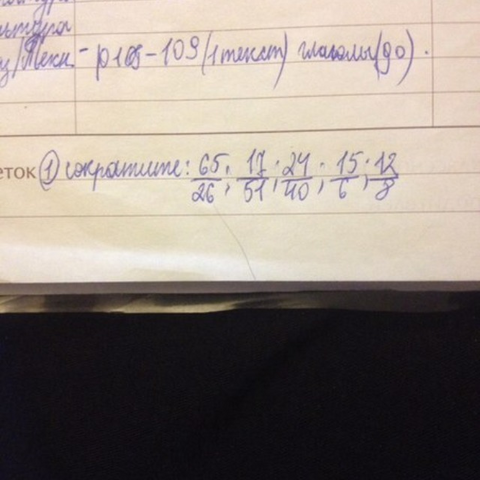 р108-109 (1 текст) глаголы (до).
еток ① сократите: 65/26; 17/51; 24/40; 15/6; 12/8